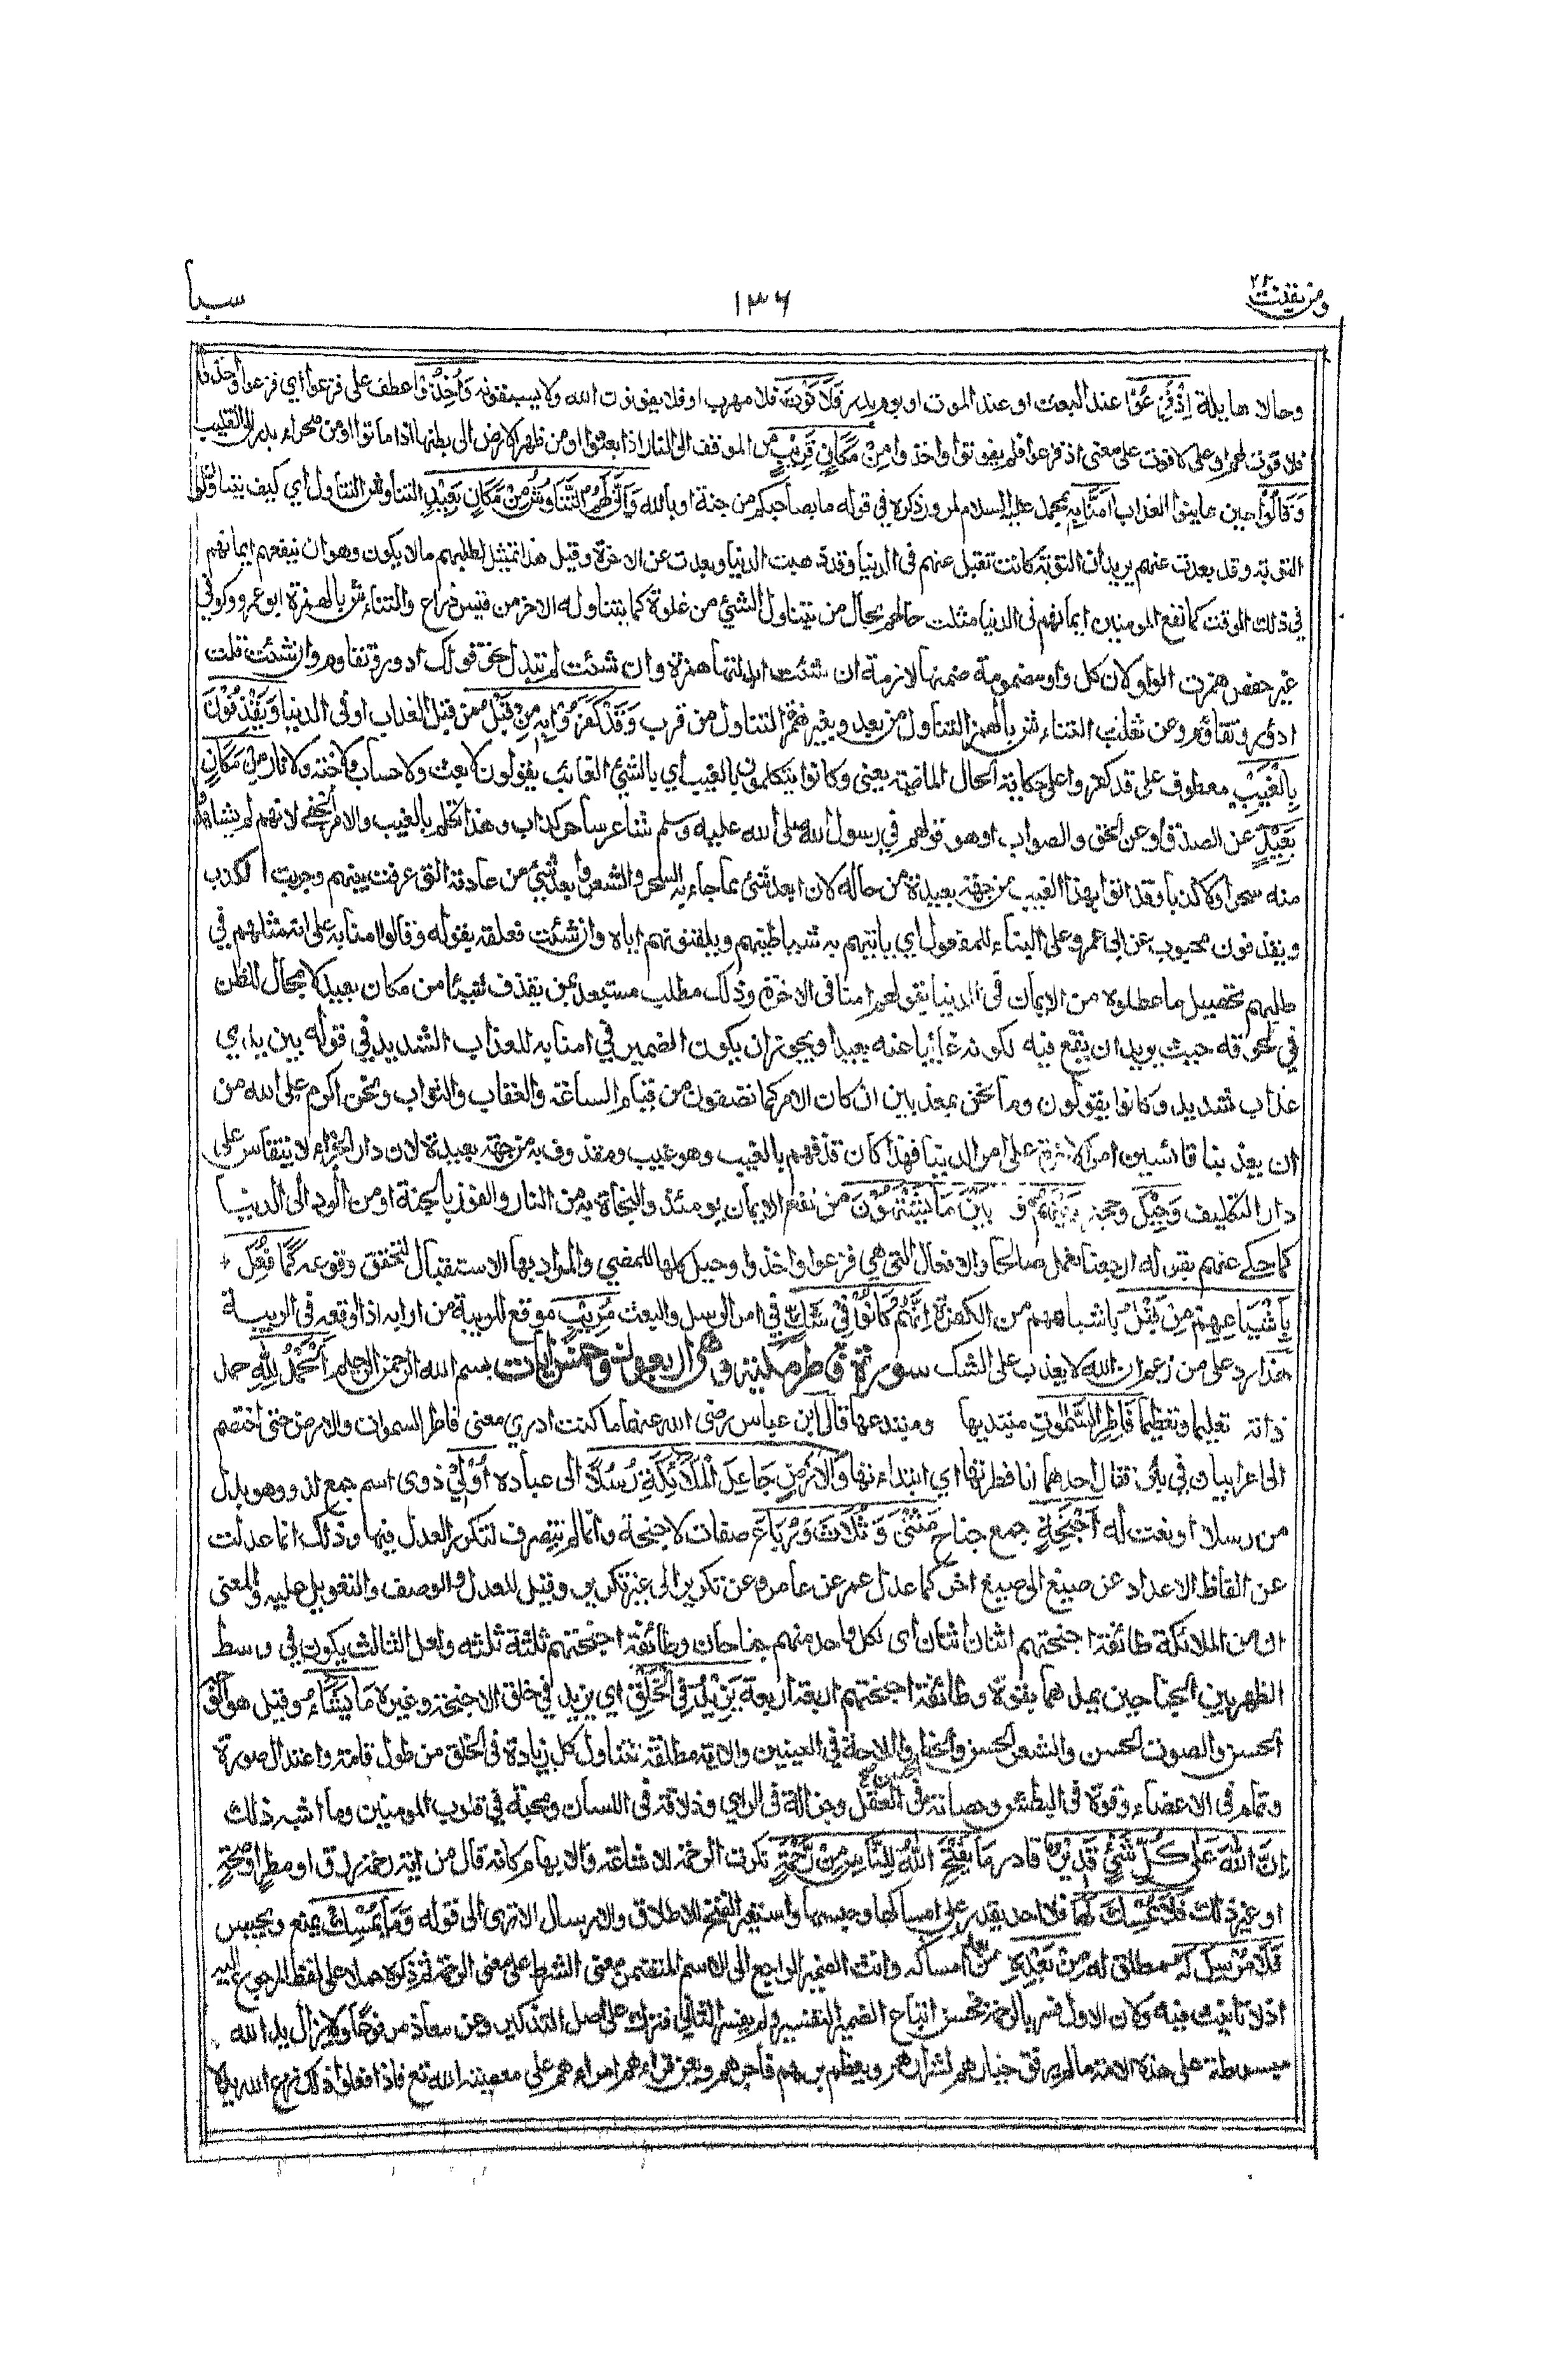 ومن يقنت ٢٢
١٣٦
سبا
وحالا هايلة إِذْ فَزِعُوْا عند البعث او عند الموت او يوم بدر فَلَا فَوْتَ فلا مهرب او فلا يفوتون الله ولا يسبقونه وَاُخِذُوْا عطف على فزعوا اي فزعوا واخذوا فلا
فلا فوت لهم او على لا فوت على معنى اذ فزعوا فلم يفوتوا واخذوا مِنْ مَّكَانٍ قَرِيْبٍ من الموقف الى النار اذا بعثوا او من ظهر الارض الى بطنها اذا ماتوا او من صحراء بدر الى القليب
وَقَالُوْا حين عاينوا العذاب اٰمَنَّا بِهٖ بمحمد عليه السلام لمرور ذكره في قوله ما بصاحبكم من جنة او بالله وَاَنّٰى لَهُمُ التَّنَاوُشُ مِنْ مَّكَانٍ بَعِيْدٍ التناوش التناول اي كيف يتناولوا
التوبة وقد بعدت عنهم يريد ان التوبة كانت تقبل عنهم في الدنيا وقد ذهبت الدنيا وبعدت عن الاخرة وقيل هذا تمثيل لطلبهم ما لا يكون وهو ان ينفعهم ايمانهم
في ذلك الوقت كما نفع المومنين ايمانهم في الدنيا مثلت حالهم بحال من يتناول الشيئ من غلوة كما يتناوله الاخر من قيس ذراع والتناءش بالهمزة ابو عمرو وكوفي
غير حفص همزت الواو لان كل واو مضمومة ضمتها لازمة ان شئت ابدلتها همزة وان شئت لم تبدل نحو قولك ادور وتقاوم وان شئت قلت
ادؤر وتقاؤم وعن ثعلب التناءش بالهمز التناول من بعد وبغير همز التناول من قرب وَقَدْ كَفَرُوْا بِهٖ مِنْ قَبْلُ من قبل العذاب او في الدنيا وَيَقْذِفُوْنَ
بِالْغَيْبِ معطوف على قد كفروا على حكاية الحال الماضية يعني وكانوا يتكلمون بالغيب اي بالشئ الغائب يقولون لا بعث ولا حساب ولا جنة ولا نار مِنْ مَّكَانٍ
بَعِيْدٍ عن الصدق او عن الحق والصواب او هو قولهم في رسول الله صلى الله عليه وسلم شاعر ساحر كذاب وهذا تكلم بالغيب والامر الخفي لانهم لم يشاهدوا
منه سحرا ولا كذبا وقد اتوا بهذا الغيب من جهة بعيدة من حاله لان ابعد شئ مما جاء به السحر والشعر وابعد شئ من عادته التي عرفت بينهم وجربت الكذب
ويقذفون محبوب عن ابي عمرو على البناء للمفعول اي ياتيهم به شياطينهم ويلقنونهم اياه وان شئت فعلقه بقوله وقالوا امنا به على انه مثلهم في
طلبهم تحصيل ما عطلوه من الايمان في الدنيا بقولهم امنا في الاخرة وذلك مطلب مستبعد بمن يقذف شيئا من مكان بعيد لا مجال للظن
في لحوقه حيث يريد ان يقع فيه لكونه غائبا عنه بعيدا ويجوز ان يكون الضمير في امنا به للعذاب الشديد في قوله بين يدي
عذاب شديد وكانوا يقولون وما نحن بمعذبين ان كان الامر كما تصفون من قيام الساعة والعقاب والثواب ونحن اكرم على الله من
ان يعذبنا قائسين امر الاخرة على امر الدنيا فهذا كان قذفهم بالغيب وهو غيب ومقذوف به من جهة بعيدة لان دار الجزاء لا ينقاس على
دار التكليف وَحِيْلَ وحجز بَيْنَهُمْ و بَيْنَ مَا يَشْتَهُوْنَ من نفع الايمان يومئذ والنجاة به من النار والفوز بالجنة او من الرد الى الدنيا
كما حكى عنهم بقوله ارجعنا نعمل صالحا والافعال التي هي فزعوا واخذوا وحيل كلها للمضي والمراد بها الاستقبال لتحقق وقوعه كَمَا فُعِلَ
بِاَشْيَاعِهِمْ مِنْ قَبْلُ باشباههم من الكفرة اِنَّهُمْ كَانُوْا فِيْ شَكٍّ في امر الرسل والبعث مُرِيْبٍ موقع للريبة من ارابه اذا اوقعه في الريبة
هذا رد على من زعم ان الله لا يعذب على الشك سورة فاطر مكية وهي اربعون وخمس ايات بسم الله الرحمن الرحيم اَلْحَمْدُ لِلّٰهِ حمد
ذاته تعليما وتعظيما فَاطِرِ السَّمٰوٰتِ مبتديها ومبتدعها قال ابن عباس رضى الله عنهما ما كنت ادري معنى فاطر السموات والارض حتى اختصم
الى اعرابيان في بئر فقال احدهما انا فطرتها اي ابتداءتها وَالْاَرْضِ جَاعِلِ الْمَلٰٓئِكَةِ رُسُلًا الى عباده اُولِيْ ذوى اسم جمع لذو وهو بدل
من رسلا او نعت له اَجْنِحَةٍ جمع جناح مَثْنٰى وَثُلَاثَ وَرُبَاعَ صفات لاجنحة وانما لم يتصرف لتكرر العدل فيها وذلك انها عدلت
عن الفاظ الاعداد عن صيغ الى صيغ اخر كما عدل عمر عن عامر وعن تكرير الى غير تكرير وقيل للعدل والوصف والتعويل عليه والمعنى
ان من الملائكة طائفة اجنحتهم اثنان اثنان اى لكل واحد منهم جناحان وطائفة اجنحتهم ثلثة ثلثه ولعل الثالث يكون في وسط
الظهر بين الجناحين يمدهما بقوة وطائفة اجنحتهم اربعة اربعة يَزِيْدُ فِي الْخَلْقِ اي يزيد في خلق الاجنحة وغيره مَا يَشَآءُ وقيل هو الوجه
الحسن والصوت الحسن والشعر الحسن والخط الحسن والملاحة في العينين والاية مطلقة تتناول كل زيادة في الخلق من طول قامة واعتدال صورة
وتمام في الاعضاء وقوة في البطش وحصافة في العقل وجزالة في الراي وذلاقة في اللسان ومحبة في قلوب المومنين وما اشبه ذلك
اِنَّ اللّٰهَ عَلٰى كُلِّ شَيْءٍ قَدِيْرٌ قادر مَا يَفْتَحِ اللّٰهُ لِلنَّاسِ مِنْ رَّحْمَةٍ نكرت الرحمة للاشاعة والابهام كانه قال من اية رحمة رزق او مطر او صحة
او غير ذلك فَلَا مُمْسِكَ لَهَا فلا احد يقدر على امساكها وحبسها واستعير الفتح للاطلاق والارسال الا ترى الى قوله وَمَا يُمْسِكْ يمنع ويحبس
فَلَا مُرْسِلَ لَهٗ مطلق له مِنْ بَعْدِهٖ من بعد امساكه وانث الضمير الراجع الى الاسم المتضمن معنى الشرط على معنى الرحمة ثم ذكره حملا على لفظ المرجوع اليه
اذ لا تانيث فيه ولان الاول فسر بالرحمة فحسن اتباع الضمير التفسير ولم يفسر الثاني فترك على اصل التذكير وعن معاذ مرفوعا لا يزال يد الله
مبسوطة على هذه الامة ما لم يرفق خيارهم بشرارهم ويعظم برهم فاجرهم ويعن قراءهم امراءهم على معصية الله تع فاذا فعلوا ذلك نزع الله يده